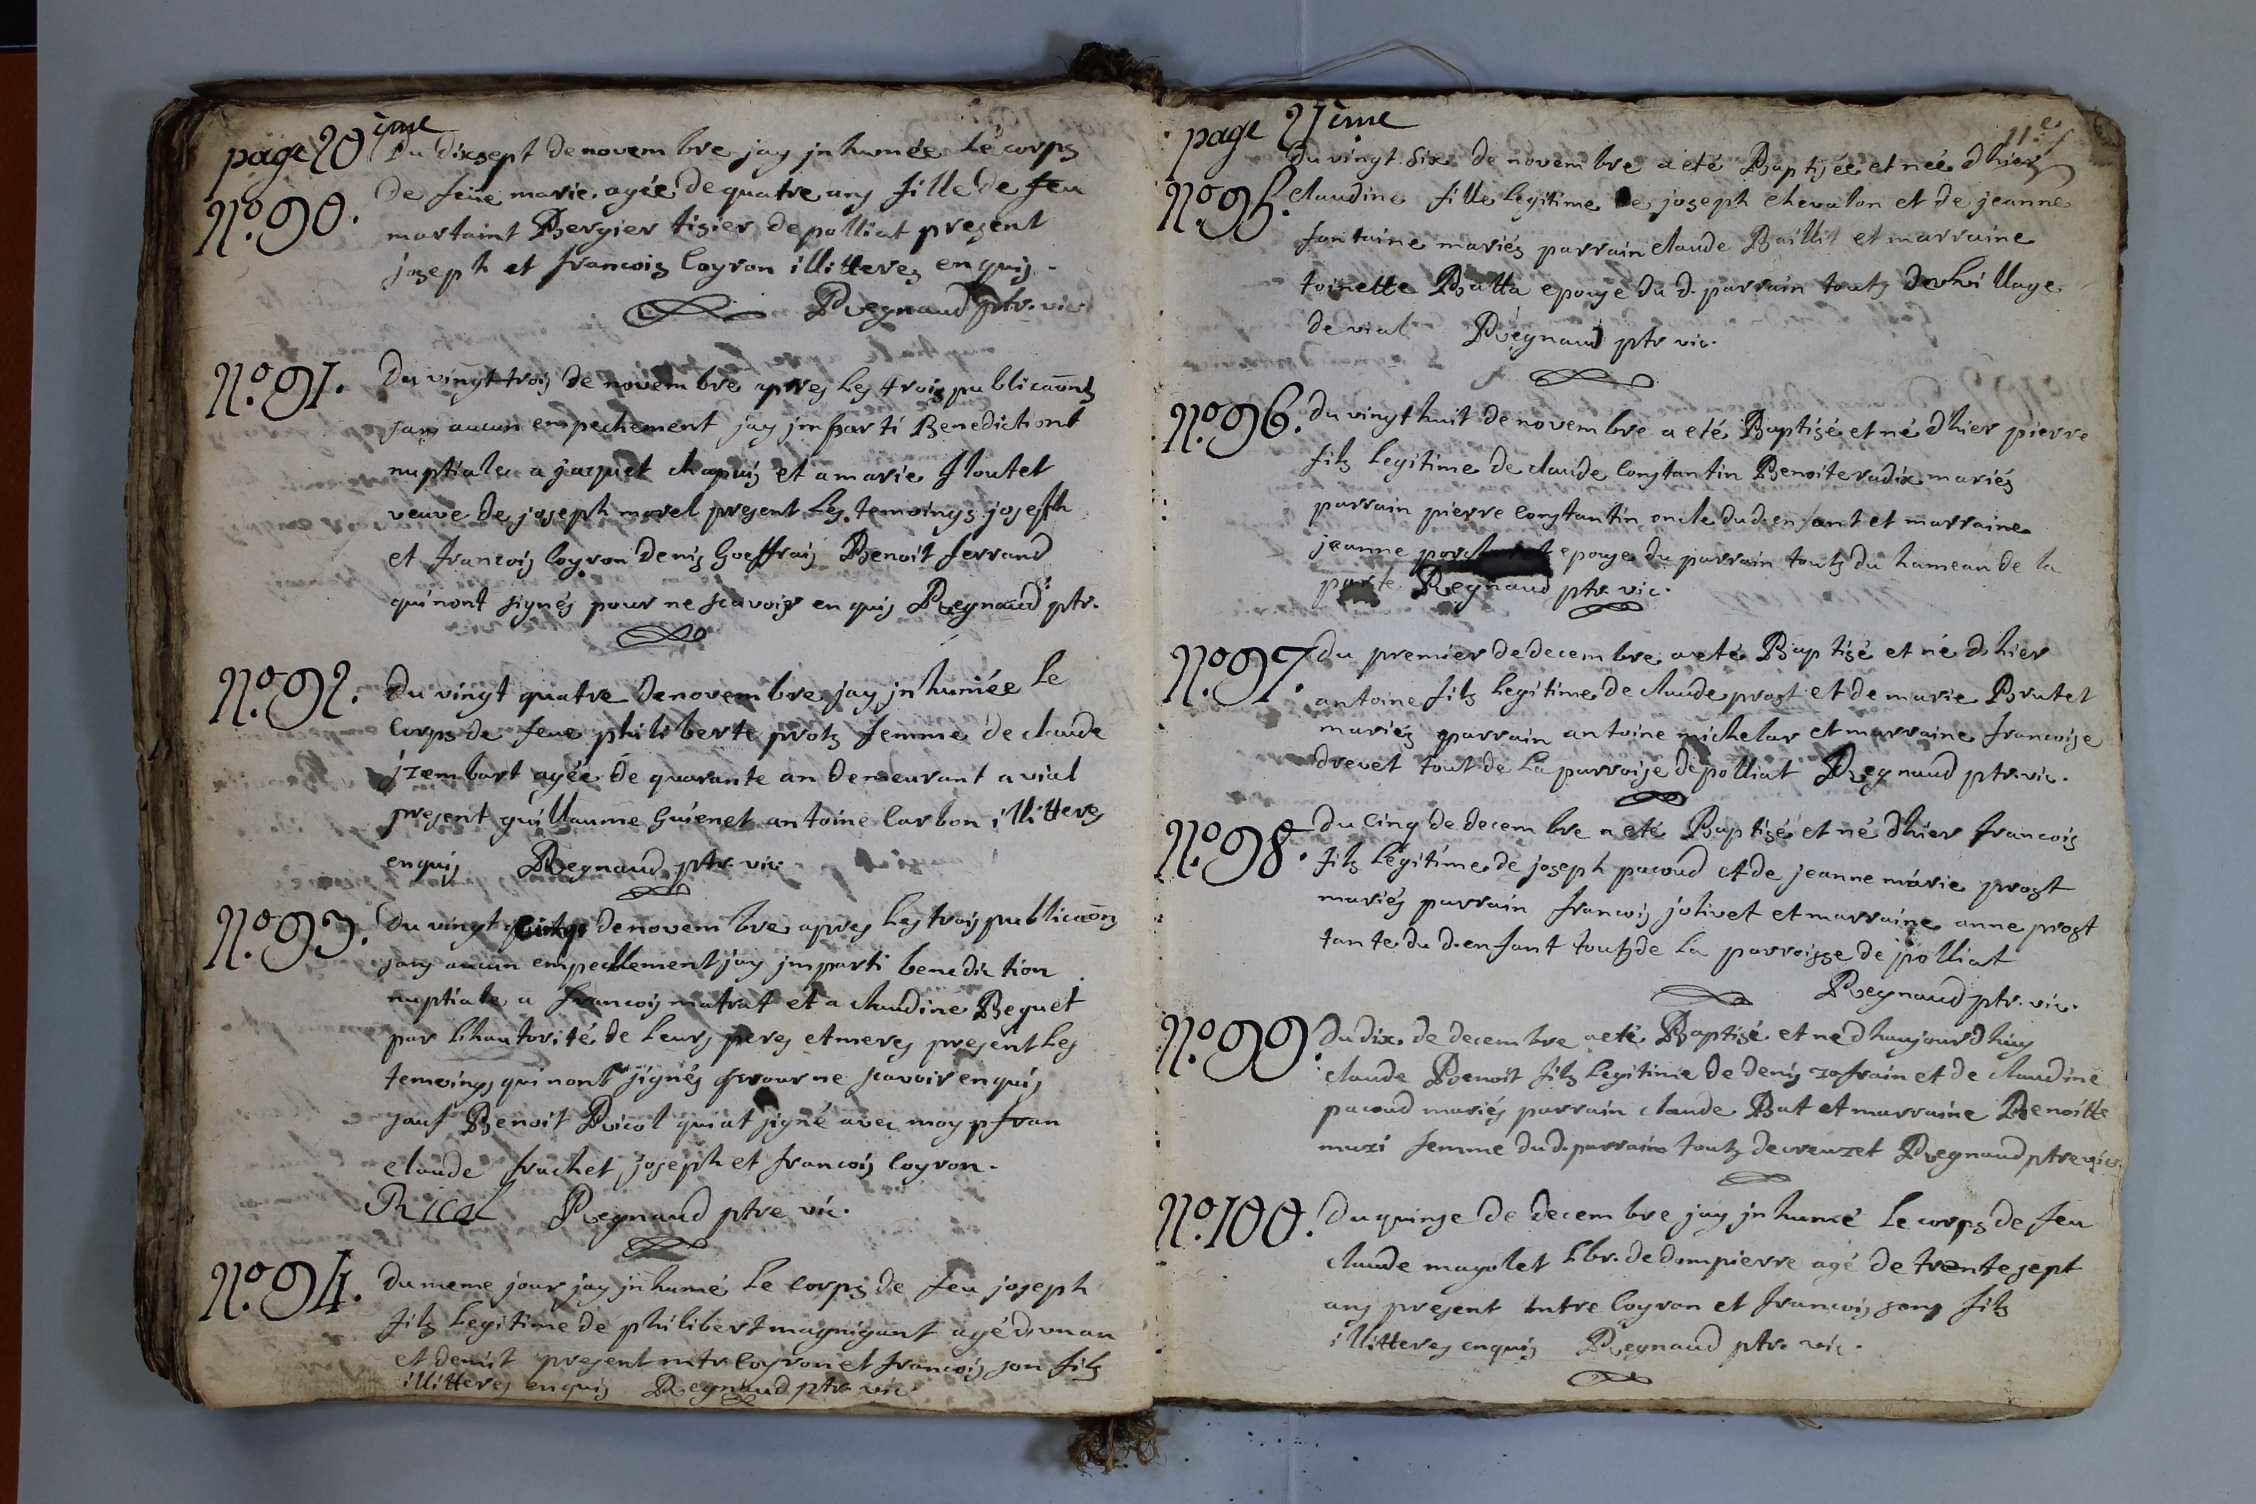 page 20 ieme
Du dixsept de novembre jay jnhumée Le corps
N.º 90. de feüe marie agée de quatre ans fille de feu
martaint Bergier tisier de polliat present
joseph et francois Coyron illitteres enquis.
Regnaud ptr. vic
N.º 91. Du vingt trois de novembre apres Les trois publicaõns
sans aucun empechement jay jmparti Benedictiont
nuptiale a jacquet chapuis et a marie floutet
veuve de joseph morel present Les temoings joseph
et francois Coyron denis Goeffrais Benoit ferrand
qui nont signés pour ne scavoir enquis Regnaud ptr.
N.º 92. du vingt quatre de novembre jay jnhumée Le
Corps de feue philiberte protz femme de claude
jzembart agée de quarante an demeurant a vial
present guillaume Guienet antoine Carbon illitteres
enquis Regnaud ptr. vic
N.º 93. Du vingt de novembre apres Les trois publicaõns
sans aucun empechement jay jmparti benediction
nuptiale a francois matrat et a claudine Bequet
par Lhautorité de Leurs peres et meres present Les
temoings qui nont signés pour ne scavoir enquis
sauf Benoit Ricol qui at signé avec moy p fran
claude frachet joseph et francois Coyron.
Ricol Regnaud ptre vic.
N.º 94. du meme jour jay jnhumé Le corps de feu joseph
filz Legitime de philibert magnigant agé d'un an
et demit present mtr Coyron et francois son filz
illitteres enquis Regnaud ptr. vic
page 21 ieme
11.e f
Du vingt. Six de novembre a eté Baptisée et née d'hier
N.º 95. claudine fille Legitime de joseph chevalon et de jeanne
fontaine mariés parrain claude Baillit et marraine
toinette Batta epouse du d. parrain toutz du hillage
de vial Regnaud ptr vic.
N.º 96. du vingt huit de novembre a eté Baptisé et né d'hier pierre
filz Legitime de claude Constantin Benoite radix mariés
parrain pierre Constantin oncle dud enfant et marraine
jeanne epouse du parrain toutz du hameau de la
Regnaud ptr. vic.
N.º 97. du premier de decembre a eté Baptisé et né d'hier
antoine filz Legitime de claude prost et de marie Brutel
mariés parrain antoine michelar et marraine francoise
drevet tout de La parroise de polliat Regnaud ptr. vic.
N.º 98. du Cinq de decembre a eté Baptisé et né d'hier francois
filz Legitime de joseph pacoud et de jeanne marie prost
mariés parrain francois jolivet et marraine anne prost
tante du d. enfant toutz de La parroisse de polliat
Regnaud ptr. vic.
N.º 99. du dix de decembre a eté Baptisé et né dhaujourdhuy
claude Benoit filz Legitime de denis zofrain et de claudine
pacoud mariés parrain claude Bat et marraine Benoitte
muzi femme du d. parrain toutz de creuzet Regnaud ptre vic.
N.º 100. du quinse de decembre jay jnhumé Le corps de feu
claude mayolet Lbr. de dompierre agé de trente sept
ans present mtre Coyron et francois sons filz
illitteres enquis Regnaud ptr. vic.